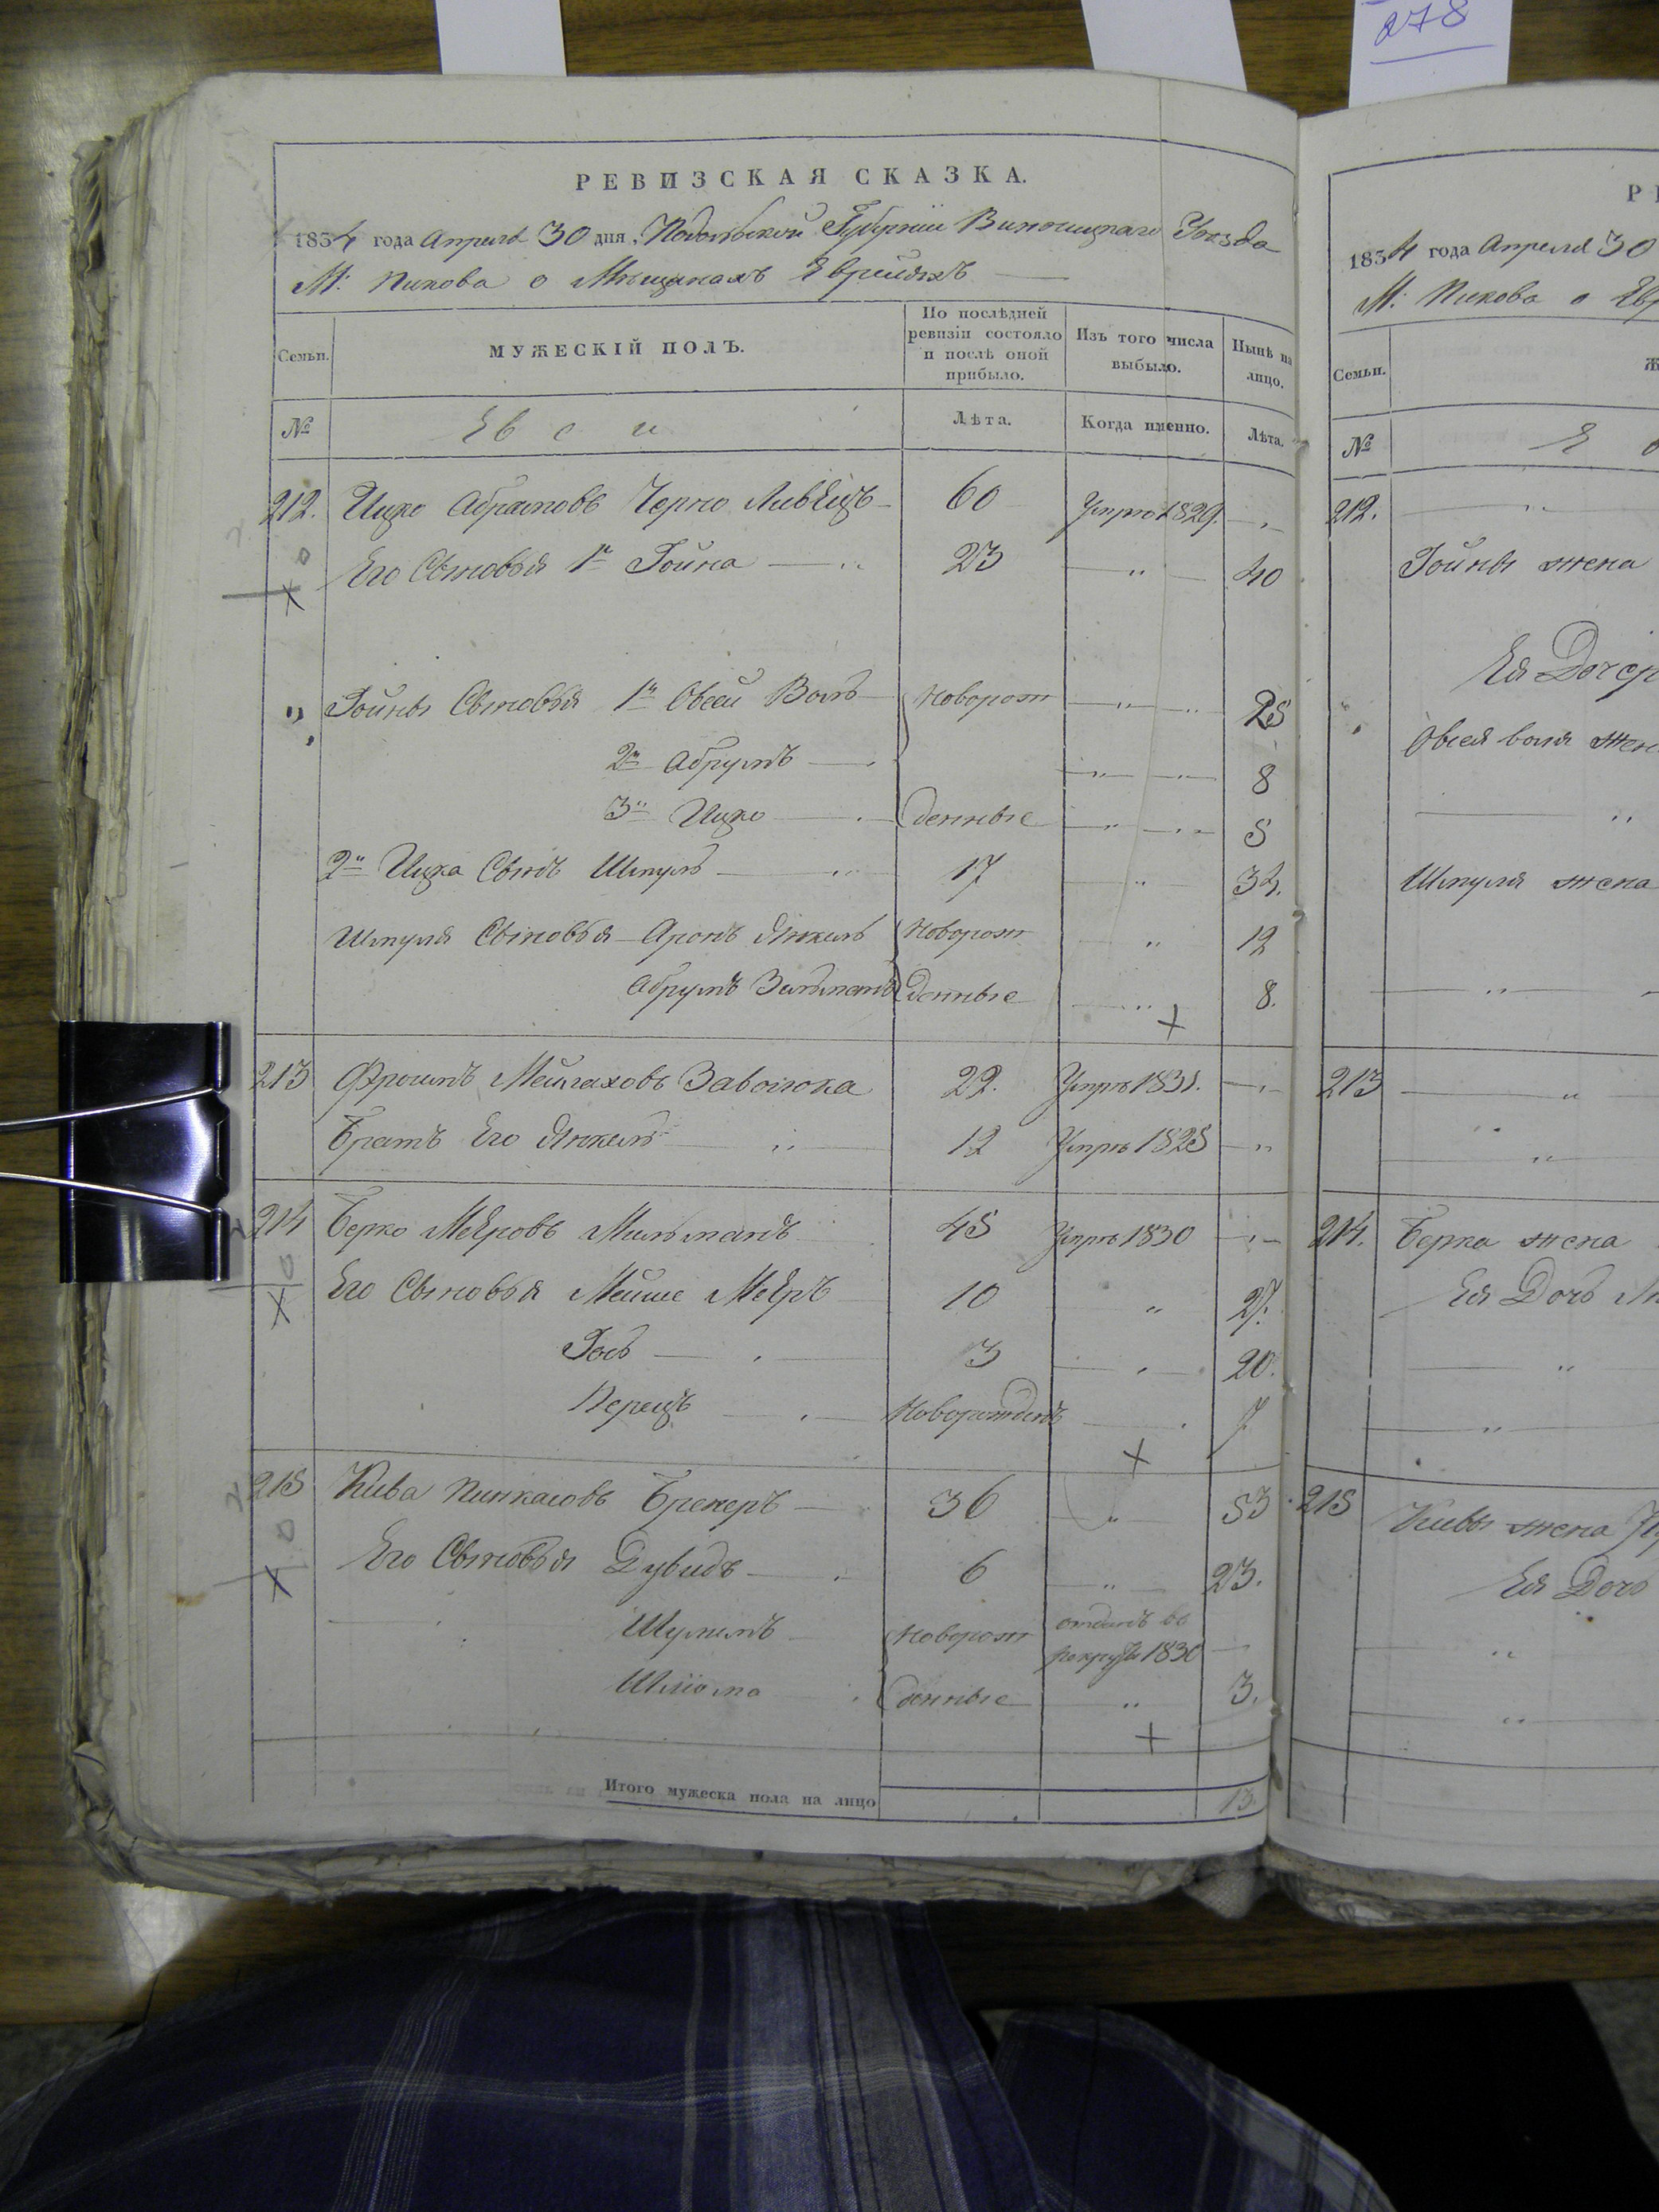 278
РЕВИЗСКАЯ СКАЗКА.
1834 года Апреля 30 дня, Подольской Губерніи Винницкаго Уезда
М: Пикова о Мещанахъ Евреяхъ
Семьи.
МУЖЕСКІЙ ПОЛЪ.
По послѣдней ревизіи состояло и послѣ оной прибыло.
Изъ того числа выбыло.
Нынѣ на лицо.
№
Евреи
Лѣта.
Когда именно.
Лѣта.
212. Ицко Абрамовъ 60 Умре 1829.
Его Сыновья 1й Гойна 23 " 40
Гойны Сыновья 1й Овсей Волъ Новорож " 25
2й Абрумъ " 8
3й Ицко денные " 5
2й Ицка Сынъ Шмуль 17 " 34.
Шмуля Сыновья Аронъ Янкель Новорож " 12
Абрумъ Зельманъ денные " 8.
213 Фроимъ Мейлаховъ 22. Умре 1831.
Братъ Его Янкель 12 Умре 1825
214 Берко Меировъ Мильманъ 45 Умре 1830
Его Сыновья Мейше Меиръ 10 " 27.
Іосъ 3 " 20.
Перецъ Новорожденъ 7
215 Кива Пинкасовъ Брекеръ 36 " 53
Его Сыновья Дувидъ 6 " 23.
Шулимъ Новорож отданъ въ
рекруты 1830
Шліома денные " 3.
Итого мужеска пола на лицо 13
РЕ
1834 года Апреля 30
М: Пикова о Евр
Семьи.
Ж
№
Е
212.
Гойны жена
Ея Дочер
Овсея воля жен
Шмуля жена
213
214. Берка жена
Ея Дочь
215 Кивы жена
Ея Дочь